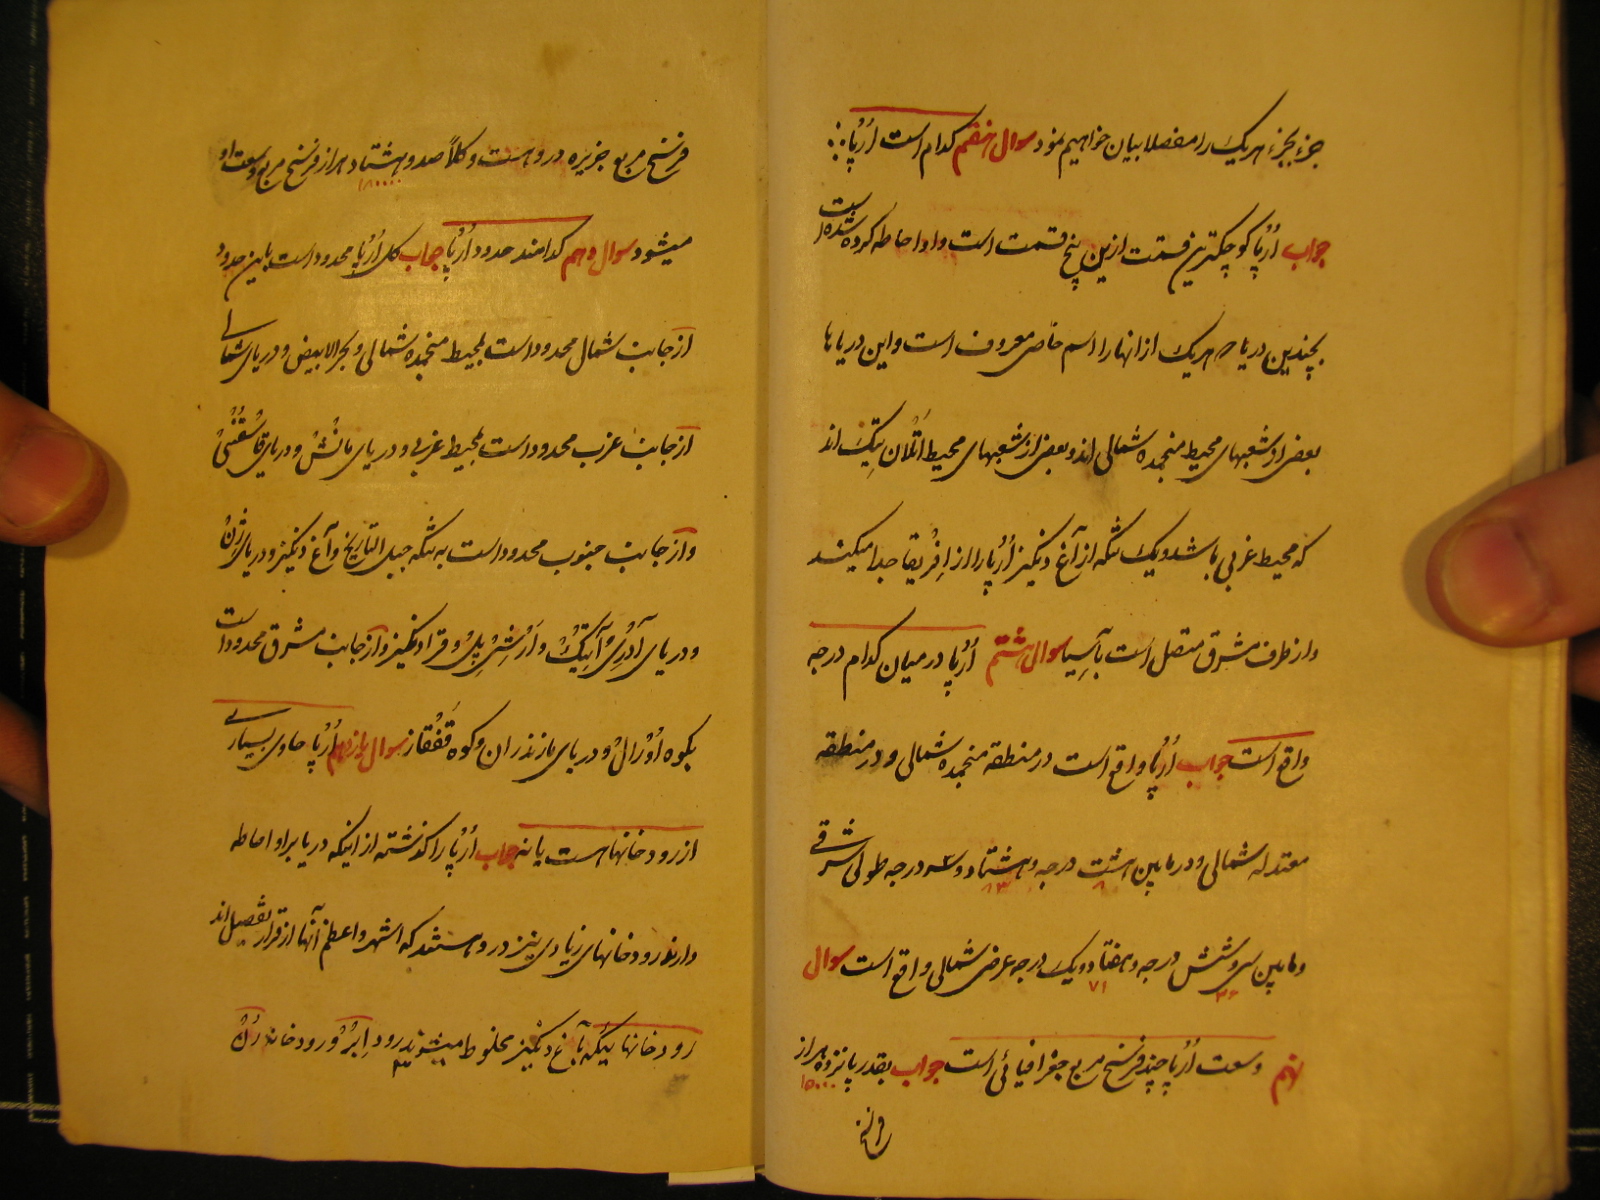 جزء بجزء هریک را مفصلا بیان خواهیم نمود سوال هفتم کدام است اُرُپا
جواب اُرُپا کوچکترین قسمت ازین پنج قسمت است و اورا احاطه کرده شده است
بچندین دریا هریک از انها را اسم خاص معروف است و این دریاها
بعضی از شعبهای محیط منجمده شمالی اند و بعضی از شعبهای محیط اَتْلان تِیک اند
که محیط غربی باشد و یک تنگه از آغ دنگیز اُرُپا را از اِفْریقا جدا میکند
و از طرف مشرق متصل است بآسِیا سوال هشتم اُرُپا در میان کدام درجه
واقع است جواب اُرُپا واقع است در منطقه منجمده شمالی و در منطقه
معتدله شمالی و در مابین هشت درجه و هشتاد و سه درجه طولی شرقی
۸ ۸۳
و مابین سی و شش درجه و هفتاد و یک درجه عرض شمالی واقع است سوال
۳۶ ۷۱
نهم وسعت اُرُپا چند فرسخ مربع جغرافیائی است جواب بقدر پانزده هزار
۱۵۰۰۰
فرسخ
فرسخ مربع جزیره در وهست و کلاً صد و هشتاد هزار فرسخ مربع وسعت او
۱۸۰۰۰۰
میشود سوال دهم کدامند حدود اُرُپا جواب کل اُرُپا محدود است باین حدود
از جانب شمال محدود است بمحیط منجمده شمالی و بحر الابیض و دریای شمالی
از جانب غرب محدود است بمحیط غربی و دریای مانْش و دریای
و از جانب جنوب محدود است به تنگه جبل التاریخ و آغ دنگیز و دریای
و دریای آدْرِیْ آتِیک و و قرادنگیز و از جانب مشرق محدود است
بکوه اُوْرال و دریای مازندران و کوه قَفْقاز سوال یازدهم اُرُپا حاوی بسیاری
از رودخانها هست یا نه جواب اُرُپا را گذشته از اینکه دریا براو احاطه
دارند رودخانهای زیادی نیز درو هستند که اشهر و اعظم آنها از قرار تفصیل اند
رودخانهائیکه بآغ دنگیز مخلوط میشوند رود اِبْرُوْ و رودخانه رُنْ